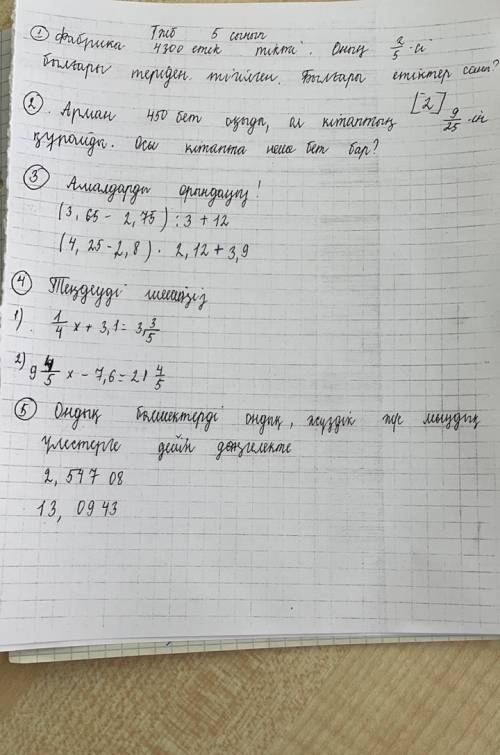 Тжб 5 сынып
① Фабрика 4300 етік тікті. Оның 2/5-сі
былғары теріден тігілген. Былғары етіктер саны?
[2]
② Арман 450 бет оқыды, ол кітаптың 9/25-ін
құрайды. Осы кітапта неше бет бар?
③ Амалдарды орындаңыз!
(3,65 - 2,75) : 3 + 12
(4,25 - 2,8) · 2,12 + 3,9
④ Теңдеуді шешіңіз
1). 1/4 x + 3,1 = 3 3/5
2) 9 4/5 x - 7,6 = 21 4/5
⑤ Ондық бөлшектерді ондық, жүздік және мыңдық
үлестерге дейін дөңгелекте
2,547 08
13, 0943